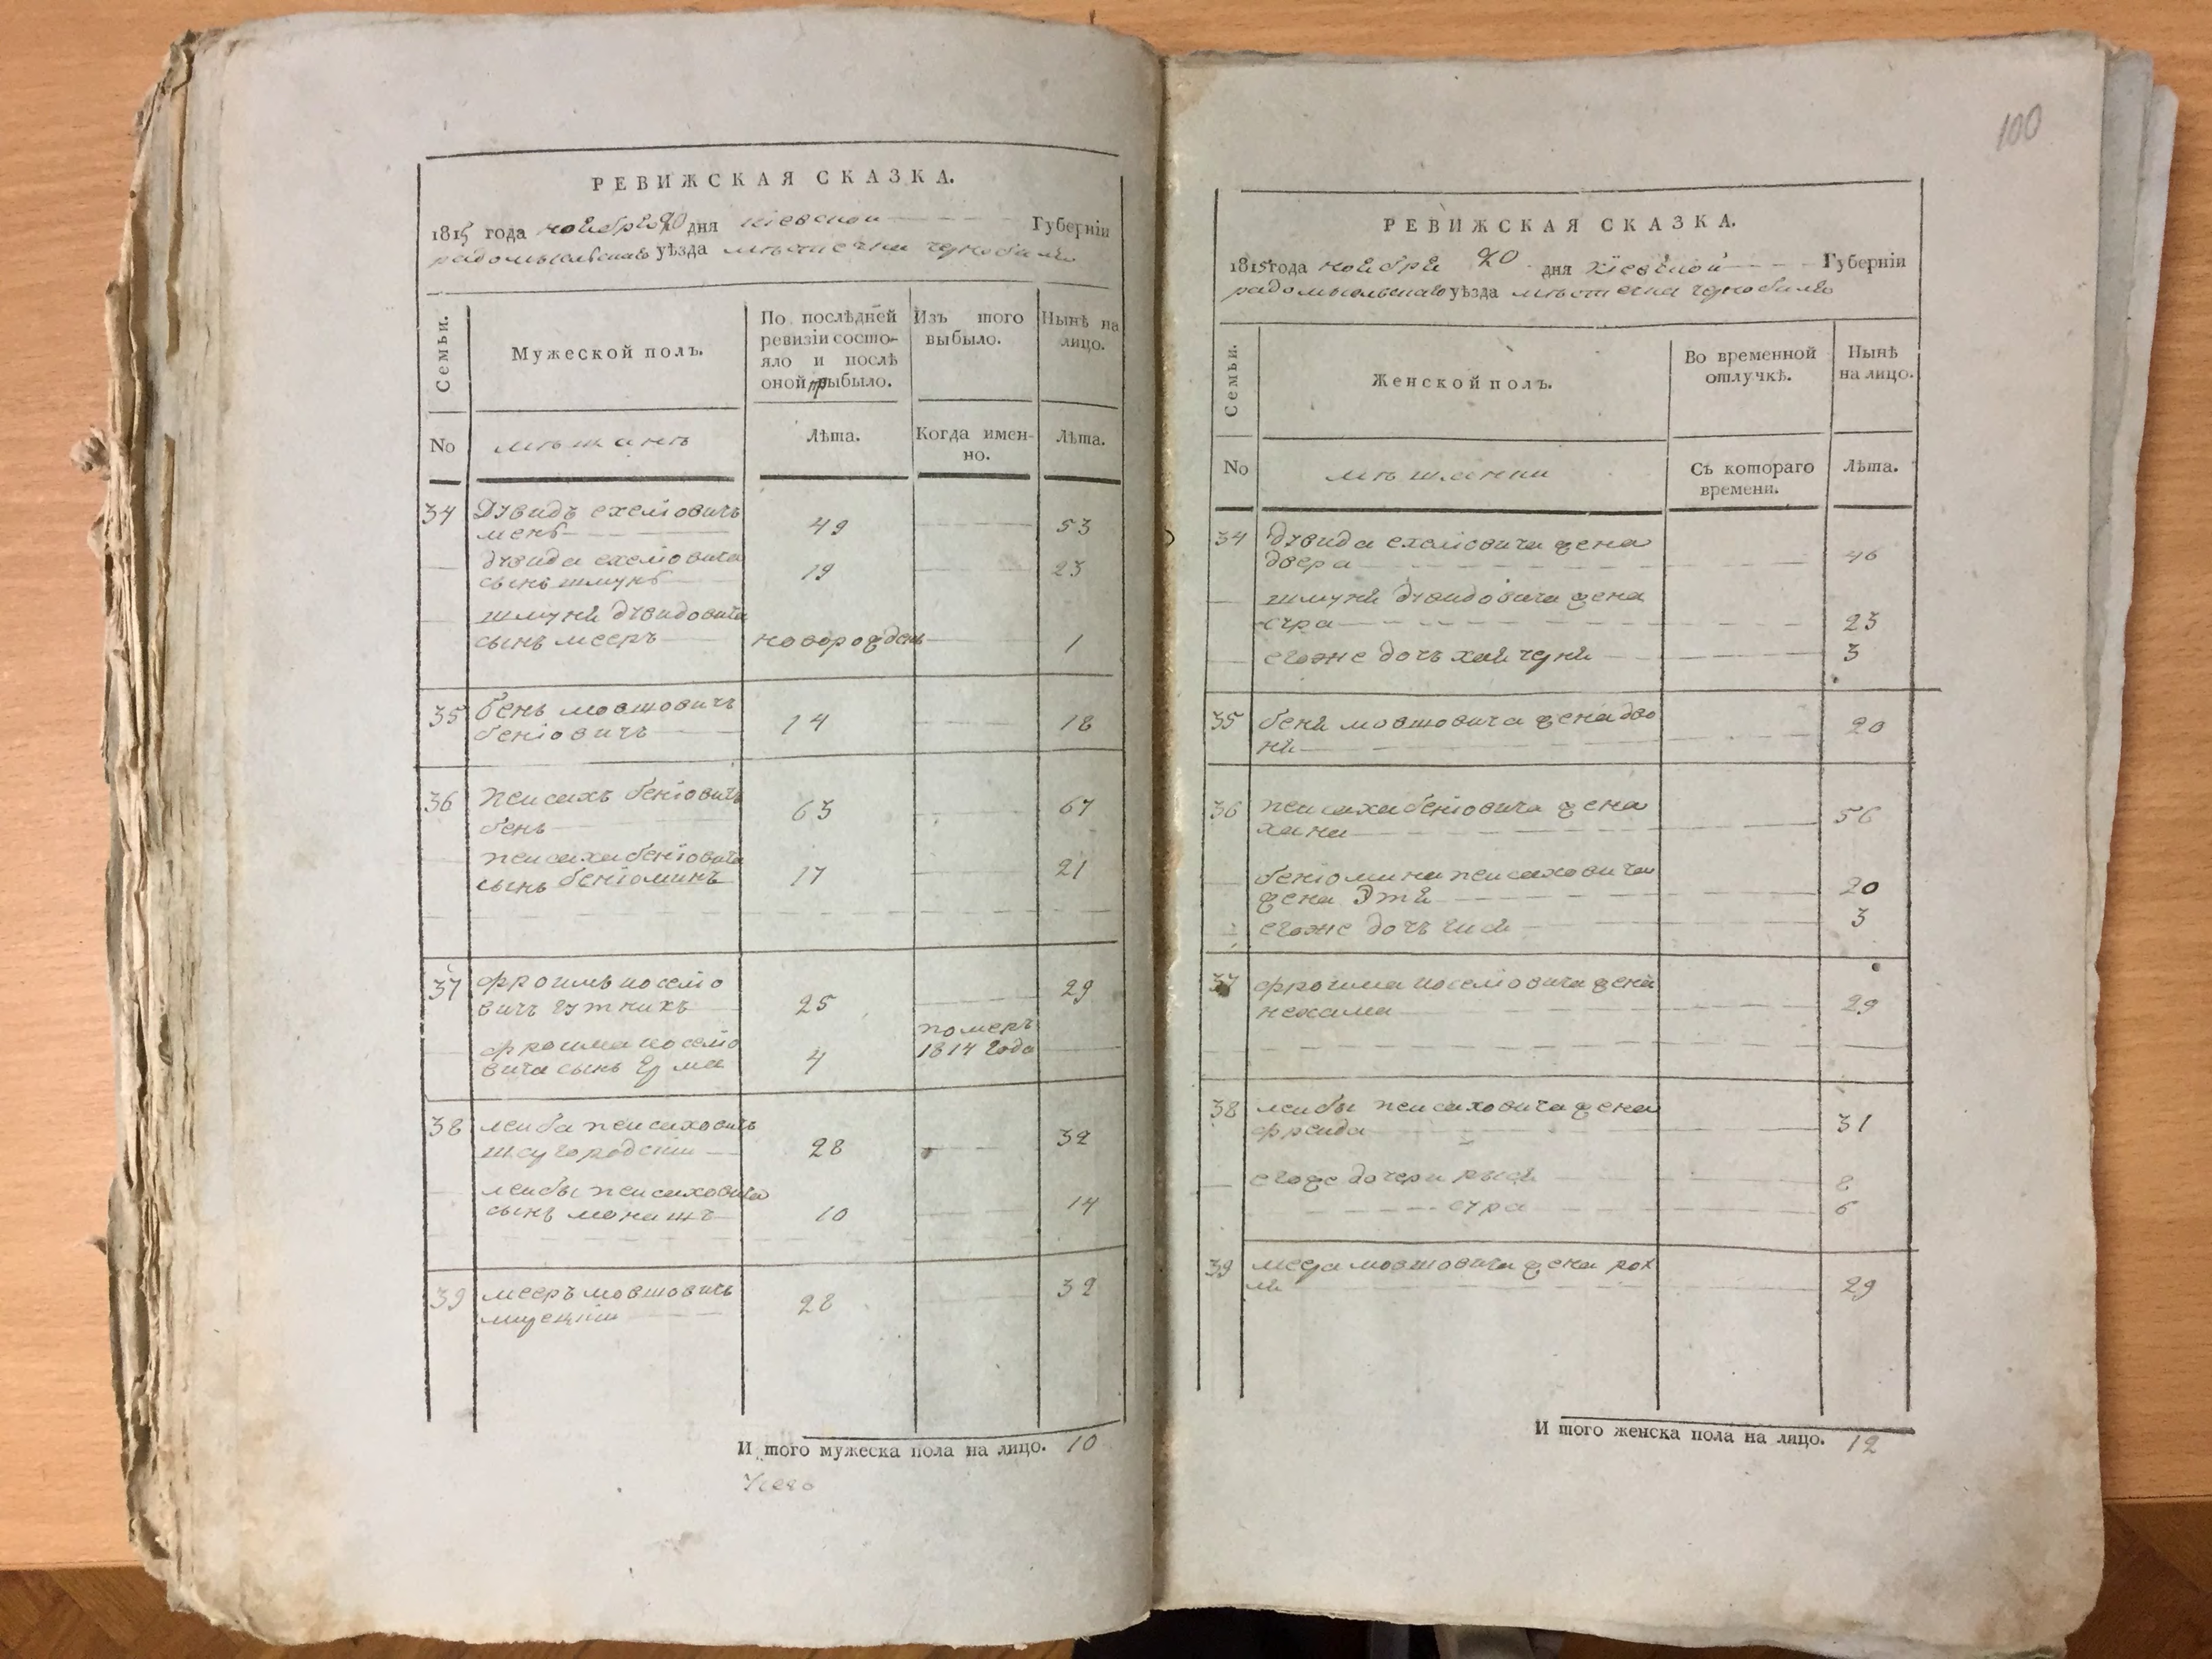 РЕВИЖСКАЯ СКАЗКА.
1815 года ноября 20 дня кіевской Губерніи
радомысльскаго уѣзда мѣстечка чернобиля
Семьи.
Мужеской полъ.
По послѣдней ревизіи состо-
яло и послѣ
оной прибыло.
Изъ того
выбыло.
Нынѣ на
лицо.
No
мѣщанъ
Лѣта.
Когда имен-
но.
Лѣта.
34 Дувидъ ехелiовичъ
49 53
дувида ехелiовича
сынъ шмунь 19 23
шмуня дувидовича
сынъ мееръ новорожденъ 1
35 бень мовшовичъ
бенiовичъ 14 18
36 пейсахъ бенiовичъ
бень 63 67
пейсаха бенiовича
сынъ бенiоминъ 17 21
37 фроимъ иоселiо
вичъ гутникъ 25 29
фроима иоселiо
вича сынъ 4
померъ
1814 года
38 лейба пейсаховичъ
28 32
лейбы пейсаховича
сынъ монашъ 10 14
39 мееръ мовшовичъ
28 32
И того мужеска пола на лицо. 10
100
РЕВИЖСКАЯ СКАЗКА.
1815 года ноября 20 дня кіевской Губерніи
радомысльскаго уѣзда мѣстечка чернобиля
Семьи.
Женской полъ.
Во временной
отлучкѣ.
Нынѣ
на лицо.
No
мѣщанки
Съ котораго
времени.
Лѣта.
34 дувида ехелiовича жена
двера 46
шмуня дувидовича жена
сура 23
егоже дочъ хайчуня 3
35 беня мовшовича жена дво
ня 20
36 пейсаха бенiовича жена
хана 56
бенiомина пейсаховича
жена Этя 20
егоже дочъ 3
37 фроима иоселiовича жена
нехама 29
38 лейбы пейсаховича жена
фрейда 31
егоже дочери рыся 8
сура 6
39 меера мовшовича жена рох
ля 29
И того женска пола на лицо. 12